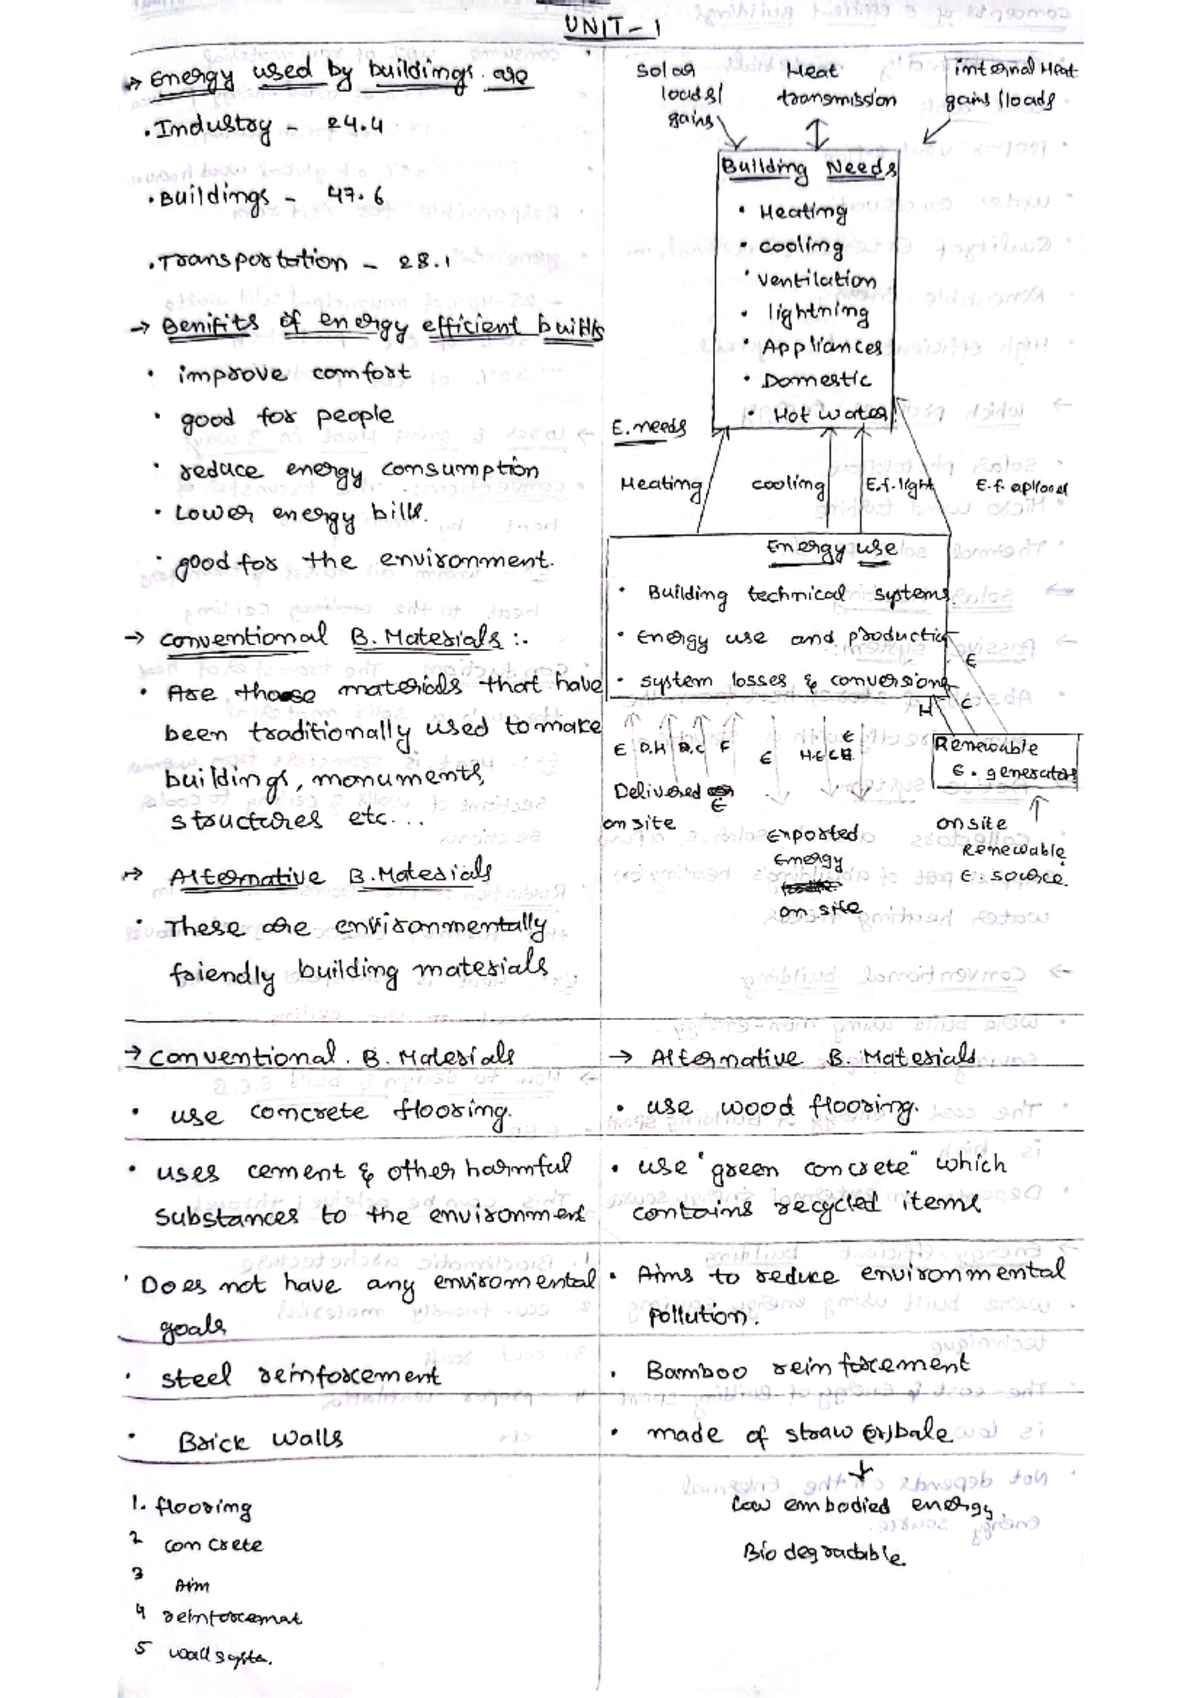 UNIT-1
→ Energy used by buildings are
• Industry - 24.4
• Buildings - 47.6
• Transportation - 28.1
→ Benifits of energy efficient builds
• improve comfort
• good for people
• reduce energy consumption
• Lower energy bills.
• good for the environment.
→ Conventional B.Materials :-
• Are those materials that have
been traditionally used to make
buildings, monuments,
structures etc...
→ Alternative B.Materials
• These are environmentally
friendly building materials
Solar
loads/
gains
Heat
transmission
internal Heat
gains/loads
Building Needs
• Heating
• cooling
• ventilation
• lightning
• Appliances
• Domestic
• Hot water
E.needs
Heating
cooling
E.f.light
Energy use
• Building technical systems.
• Energy use and productio
• system losses & conversions
E
C
H
E D.H D.C F
E
H.E C.H
E
Delivered
E
on site
Exported
Energy
on site
Renewable
E. generators
onsite
Renewable
E. source.
→ conventional. B. Materials
→ Alternative B. Materials
• use concrete flooring.
• use wood flooring.
• uses cement & other harmful
substances to the environment
• use "green concrete" which
contains recycled items
• Does not have any enviromental
goals
• Aims to reduce environmental
pollution.
• steel reinforcement
• Bamboo reinforcement
• Brick walls
• made of straw (or)bale
↓
Low embodied energy.
Bio degradable.
1. flooring
2 concrete
3 Aim
4 reinforcemat
5 wall syste.